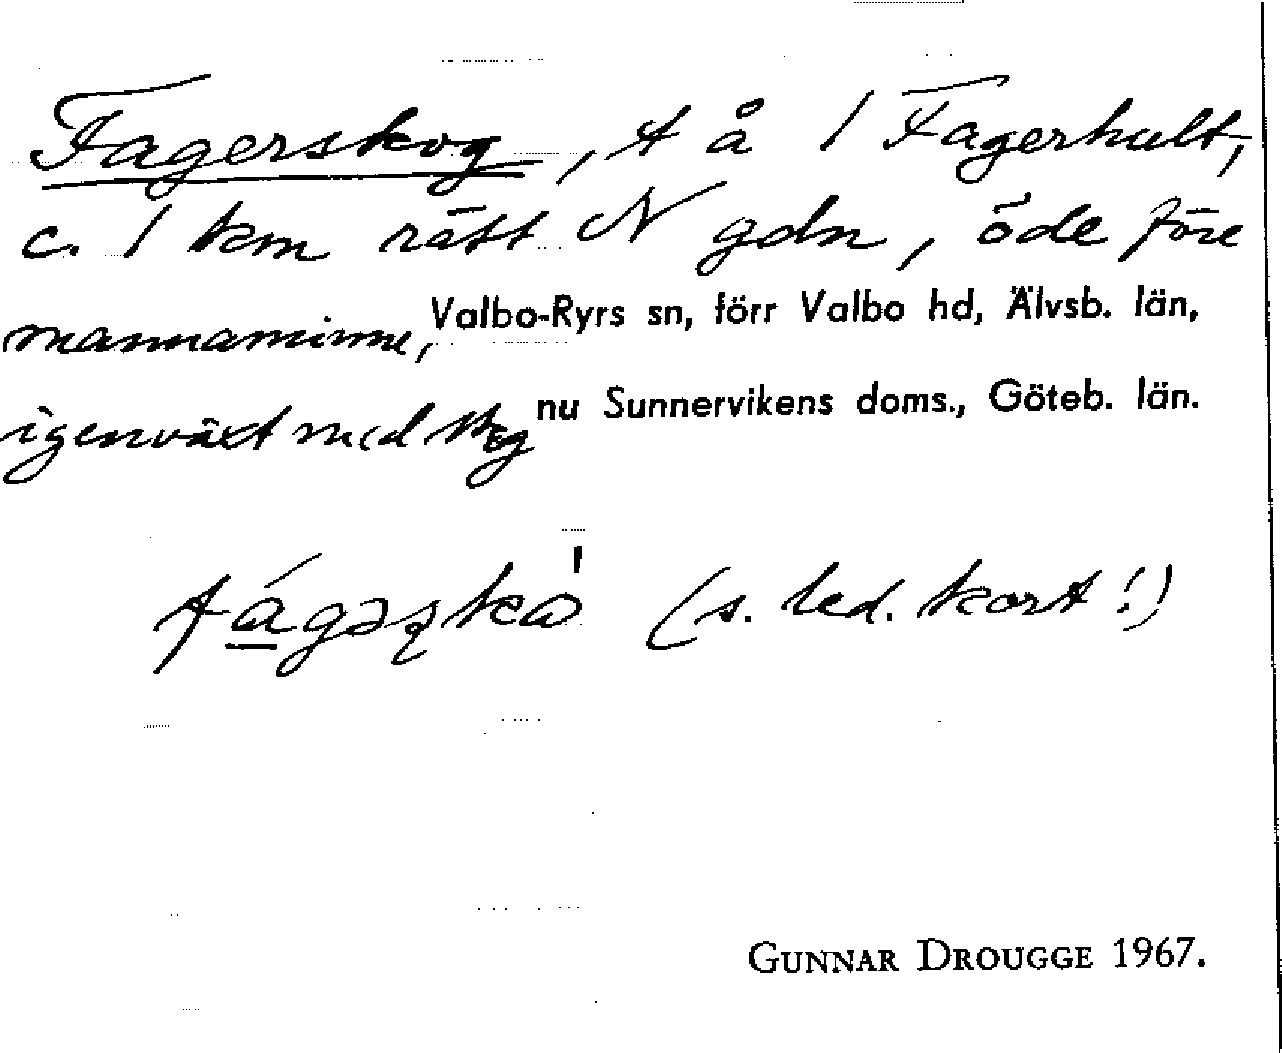 Fagerskog, t å 1 Fagerhult,
c. 1 km rätt N gdn, öde före
mannaminne, Valbo-Ryrs sn, förr Valbo hd, Älvsb. län,
igenväxt med skog nu Sunnervikens doms., Göteb. län.
(s. led. kort!)
GUNNAR DROUGGE 1967.